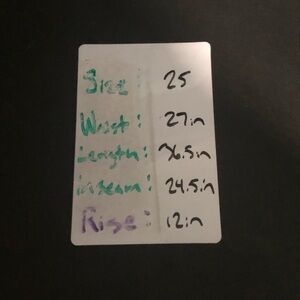 Size: 25
Waist: 27in
Length: 36.5in
inseam: 24.5in
Rise: 12in